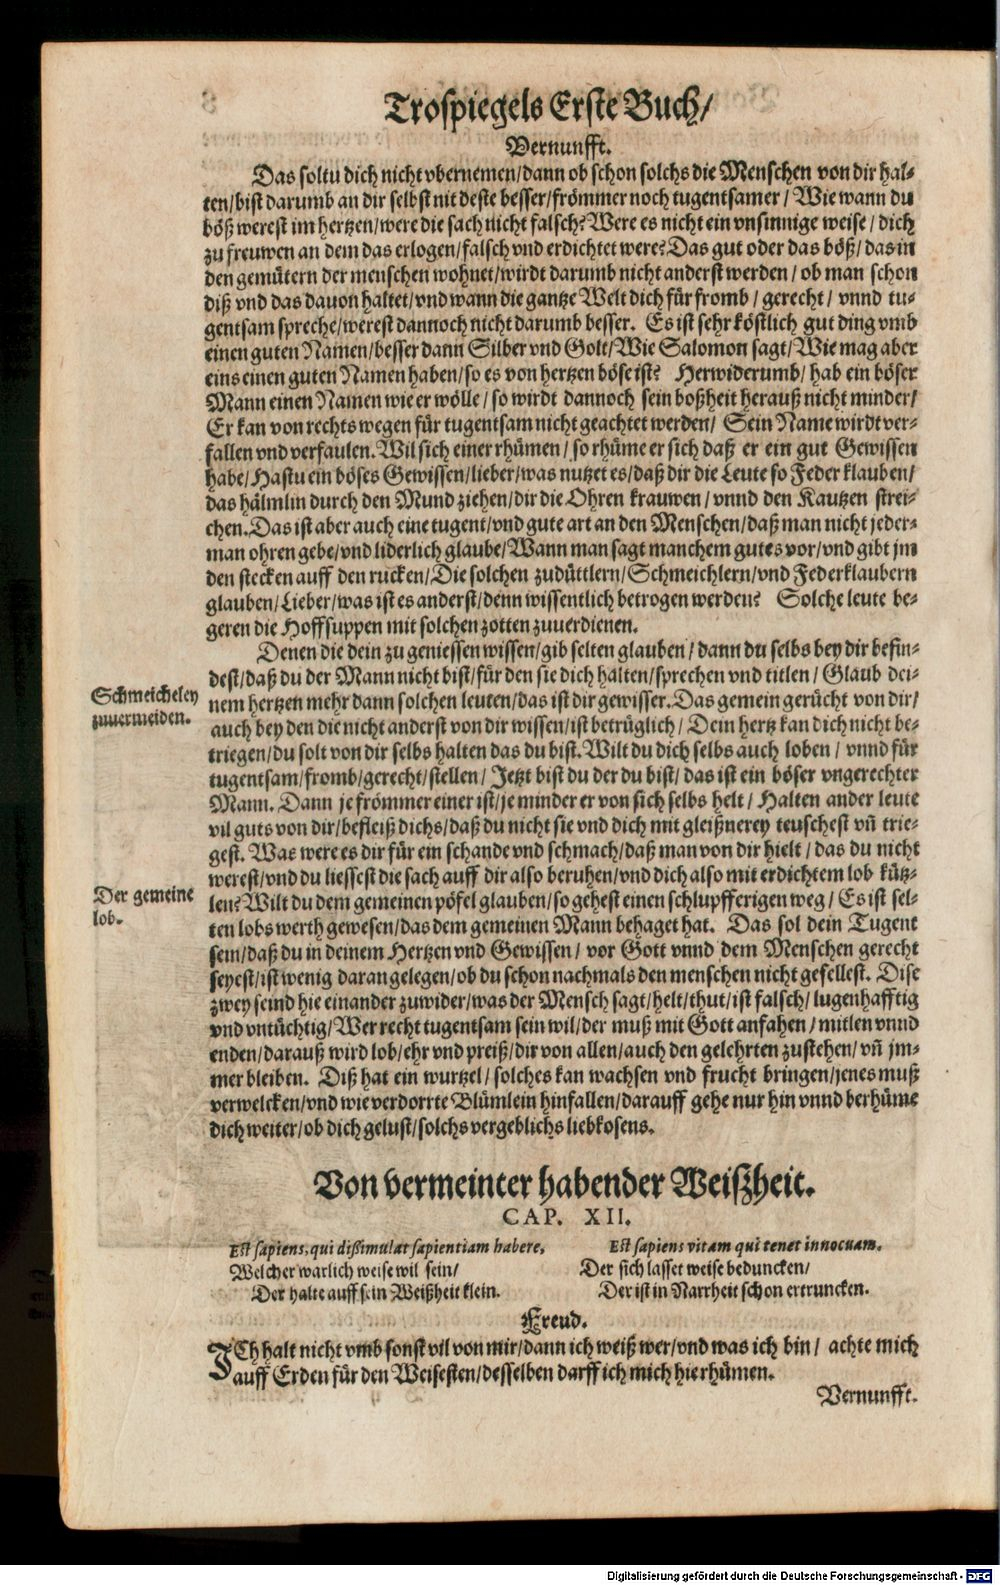 Trospiegels Erste Buch/
Vernunfft.
Das soltu dich nicht vbernemen/dann ob schon solchs die Menschen von dir hal-
ten/bist darumb an dir selbst nit deste besser/frömmer noch tugentsamer/ Wie wann du
böß werest im hertzen/were die sach nicht falsch? Were es nicht ein vnsinnige weise/ dich
zu freuwen an dem das erlogen/falsch vnd erdichtet were? Das gut oder das böß/ das in
den gemütern der menschen wohnet/wirdt darumb nicht anderst werden/ ob man schon
diß vnd das dauon haltet/vnd wann die gantze Welt dich für fromb/ gerecht/ vnnd tu-
gentsam spreche/werest dannoch nicht darumb besser. Es ist sehr köstlich gut ding vmb
einen guten Namen/besser dann Silber vnd Golt/Wie Salomon sagt/Wie mag aber
eins einen guten Namen haben/so es von hertzen böse ist? Herwiderumb/ hab ein böser
Mann einen Namen wie er wölle/ so wirdt dannoch sein boßheit herauß nicht minder/
Er kan von rechts wegen für tugentsam nicht geachtet werden/ Sein Name wirdt ver-
fallen vnd verfaulen. Wil sich einer rhümen/ so rhüme er sich daß er ein gut Gewissen
habe/Hastu ein böses Gewissen/lieber/was nutzet es/daß dir die Leute so Feder klauben/
das hälmlin durch den Mund ziehen/dir die Ohren krauwen/ vnnd den Kautzen strei-
chen. Das ist aber auch eine tugent/vnd gute art an den Menschen/daß man nicht jeder-
man ohren gebe/vnd liderlich glaube/Wann man sagt manchem gutes vor/vnd gibt jm
den stecken auff den rucken/Die solchen zudüttlern/Schmeichlern/vnd Federklaubern
glauben/Lieber/was ist es anderst/denn wissentlich betrogen werden? Solche leute be-
geren die Hoffsuppen mit solchen zotten zuuerdienen.
Denen die dein zu geniessen wissen/gib selten glauben/ dann du selbs bey dir befin-
dest/daß du der Mann nicht bist/für den sie dich halten/sprechen vnd titlen/ Glaub dei-
Schmeicheley
zuuermeiden.
nem hertzen mehr dann solchen leuten/das ist dir gewisser. Das gemein gerücht von dir/
auch bey den die nicht anderst von dir wissen/ist betrüglich/ Dein hertz kan dich nicht be-
triegen/du solt von dir selbs halten das du bist. Wilt du dich selbs auch loben/ vnnd für
tugentsam/fromb/gerecht/stellen/ Jetzt bist du der du bist/ das ist ein böser vngerechter
Mann. Dann je frömmer einer ist/je minder er von sich selbs helt/ Halten ander leute
vil guts von dir/befleiß dichs/daß du nicht sie vnd dich mit gleißnerey teuschest vñ trie-
gest. Was were es dir für ein schande vnd schmach/daß man von dir hielt/ das du nicht
werest/vnd du liessest die sach auff dir also beruhen/vnd dich also mit erdichtem lob kütz-
Der gemeine
lob.
len? Wilt du dem gemeinen pöfel glauben/so gehest einen schlupfferigen weg/ Es ist sel-
ten lobs werth gewesen/das dem gemeinen Mann behaget hat. Das sol dein Tugent
sein/daß du in deinem Hertzen vnd Gewissen/ vor Gott vnnd dem Menschen gerecht
seyest/ist wenig daran gelegen/ob du schon nachmals den menschen nicht gefellest. Dise
zwey seind hie einander zuwider/was der Mensch sagt/helt/thut/ist falsch/ lugenhafftig
vnd vntüchtig/Wer recht tugentsam sein wil/der muß mit Gott anfahen/ mitlen vnnd
enden/darauß wird lob/ehr vnd preiß/dir von allen/auch den gelehrten zustehen/vñ jm-
mer bleiben. Diß hat ein wurtzel/ solches kan wachsen vnd frucht bringen/jenes muß
verwelcken/vnd wie verdorrte Blümlein hinfallen/darauff gehe nur hin vnnd berhüme
dich weiter/ob dich gelust/solchs vergeblichs liebkosens.
Von vermeinter habender Weißheit.
CAP. XII.
Est sapiens, qui dissimulat sapientiam habere, Est sapiens vitam qui tenet innocuam.
Welcher warlich weise wil sein/ Der sich lasset weise beduncken/
Der halte auff sein Weißheit klein. Der ist in Narrheit schon ertruncken.
Freud.
JCh halt nicht vmb sonst vil von mir/dann ich weiß wer/vnd was ich bin/ achte mich
auff Erden für den Weisesten/desselben darff ich mich hie rhümen.
Vernunfft.
Digitalisierung gefördert durch die Deutsche Forschungsgemeinschaft - DFG